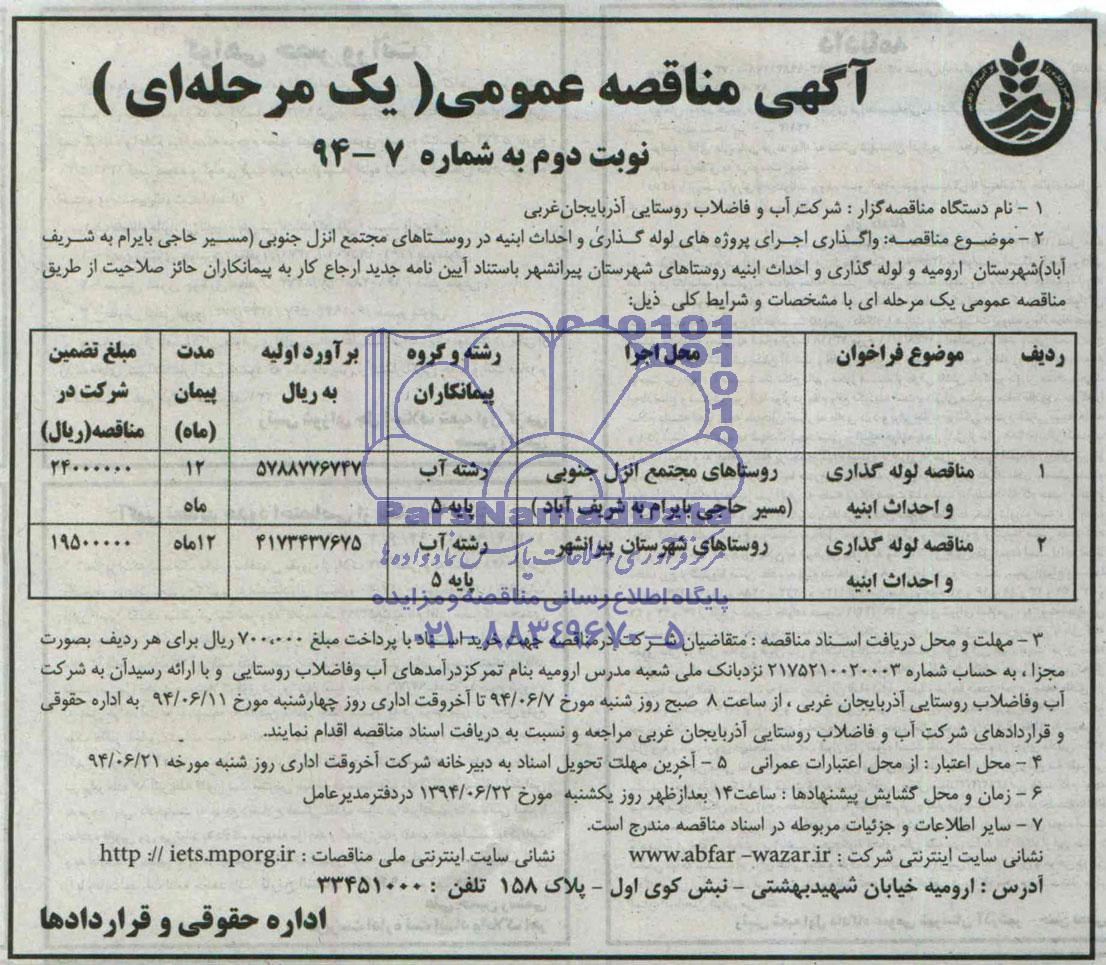 آگهی مناقصه عمومی( یک مرحله‌ای )
نوبت دوم به شماره ۷ – ۹۴
۱ – نام دستگاه مناقصه‌گزار : شرکت آب و فاضلاب روستایی آذربایجان‌غربی
۲ – موضوع مناقصه: واگذاری اجرای پروژه های لوله گذاری و احداث ابنیه در روستاهای مجتمع انزل جنوبی (مسیر حاجی بایرام به شریف
آباد)شهرستان ارومیه و لوله گذاری و احداث ابنیه روستاهای شهرستان پیرانشهر باستناد آیین نامه جدید ارجاع کار به پیمانکاران حائز صلاحیت از طریق
مناقصه عمومی یک مرحله ای با مشخصات و شرایط کلی ذیل:
ردیف موضوع فراخوان محل اجرا رشته و گروه پیمانکاران برآورد اولیه به ریال مدت پیمان (ماه) مبلغ تضمین شرکت در مناقصه(ریال)
۱ مناقصه لوله گذاری و احداث ابنیه روستاهای مجتمع انزل جنوبی (مسیر حاجی بایرام به شریف آباد ) رشته آب پایه ۵ ۵۷۸۸۷۷۶۷۴۷ ۱۲ ماه ۲۴۰۰۰۰۰۰۰
۲ مناقصه لوله گذاری و احداث ابنیه روستاهای شهرستان پیرانشهر رشته آب پایه ۵ ۴۱۷۳۴۳۷۶۷۵ ۱۲ماه ۱۹۵۰۰۰۰۰۰
010101
ParsNamadData
مرکز فرآوری اطلاعات پارس نماد داده‌ها
پایگاه اطلاع رسانی مناقصه و مزایده
۰۲۱-۸۸۳۴۹۶۷۰-۵
۳ – مهلت و محل دریافت اسناد مناقصه : متقاضیان شرکت در مناقصه جهت خرید اسناد با پرداخت مبلغ ۷۰۰,۰۰۰ ریال برای هر ردیف بصورت
مجزا ، به حساب شماره ۲۱۷۵۲۱۰۰۲۰۰۰۳ نزدبانک ملی شعبه مدرس ارومیه بنام تمرکزدرآمدهای آب وفاضلاب روستایی و با ارائه رسیدآن به شرکت
آب وفاضلاب روستایی آذربایجان غربی ، از ساعت ۸ صبح روز شنبه مورخ ۹۴/۰۶/۷ تا آخروقت اداری روز چهارشنبه مورخ ۹۴/۰۶/۱۱ به اداره حقوقی
و قراردادهای شرکت آب و فاضلاب روستایی آذربایجان غربی مراجعه و نسبت به دریافت اسناد مناقصه اقدام نمایند.
۴ – محل اعتبار : از محل اعتبارات عمرانی ۵ – آخرین مهلت تحویل اسناد به دبیرخانه شرکت آخروقت اداری روز شنبه مورخه ۹۴/۰۶/۲۱
۶ – زمان و محل گشایش پیشنهادها : ساعت۱۴ بعدازظهر روز یکشنبه مورخ ۱۳۹۴/۰۶/۲۲ دردفترمدیرعامل
۷ – سایر اطلاعات و جزئیات مربوطه در اسناد مناقصه مندرج است.
نشانی سایت اینترنتی شرکت : www.abfar –wazar.ir نشانی سایت اینترنتی ملی مناقصات : http :// iets.mporg.ir
آدرس : ارومیه خیابان شهیدبهشتی – نبش کوی اول – پلاک ۱۵۸ تلفن : ۳۳۴۵۱۰۰۰
اداره حقوقی و قراردادها